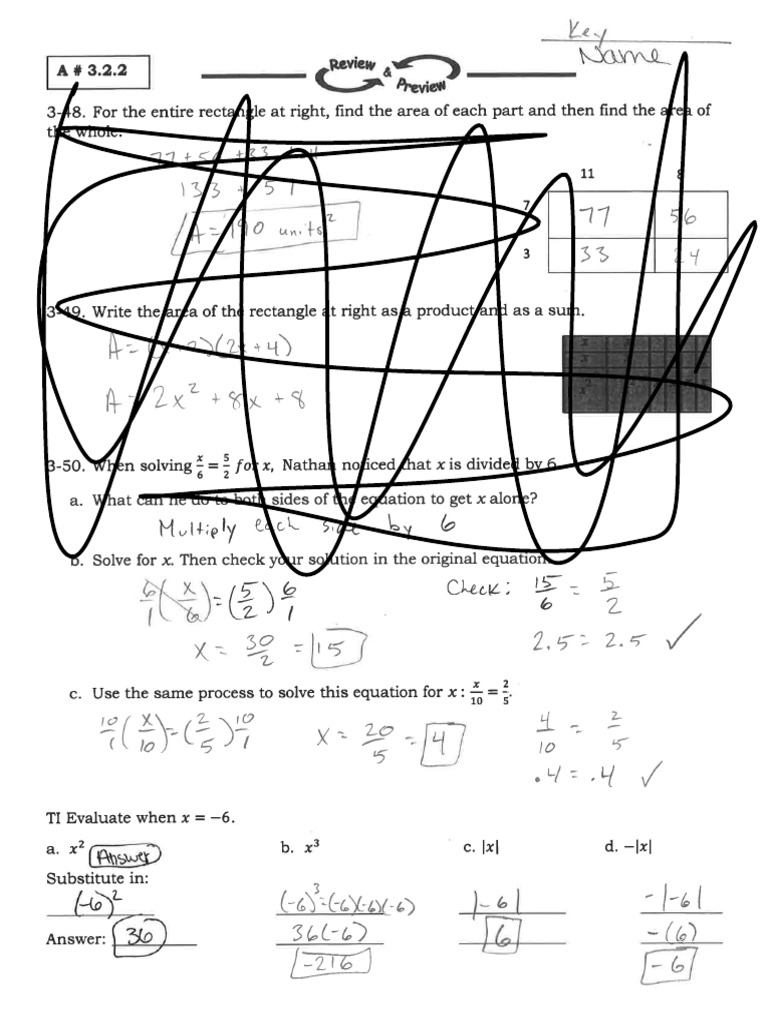 Key
Name
A # 3.2.2
Review & Preview
3-48. For the entire rectangle at right, find the area of each part and then find the area of
the whole.
77 + 56 + 33 +
133 + 57
A = 190 units²
11 8
7 77 56
3 33 24
3-49. Write the area of the rectangle at right as a product and as a sum.
A = )(2x+4)
A = 2x² + 8x + 8
3-50. When solving x/6 = 5/2 for x, Nathan noticed that x is divided by 6.
a. What can he do to both sides of the equation to get x alone?
Multiply each side by 6
b. Solve for x. Then check your solution in the original equation.
6/1 (x/6) = (5/2) 6/1 Check: 15/6 = 5/2
x = 30/2 = 15 2.5 = 2.5 ✓
c. Use the same process to solve this equation for x : x/10 = 2/5.
10/1 (x/10) = (2/5) 10/1 x = 20/5 = 4 4/10 = 2/5
.4 = .4 ✓
TI Evaluate when x = −6.
a. x² Answer b. x³ c. |x| d. −|x|
Substitute in:
(-6)² (-6)³=(-6)(-6)(-6) |-6| -|-6|
36(-6) -(6)
Answer: 36 -216 6 -6